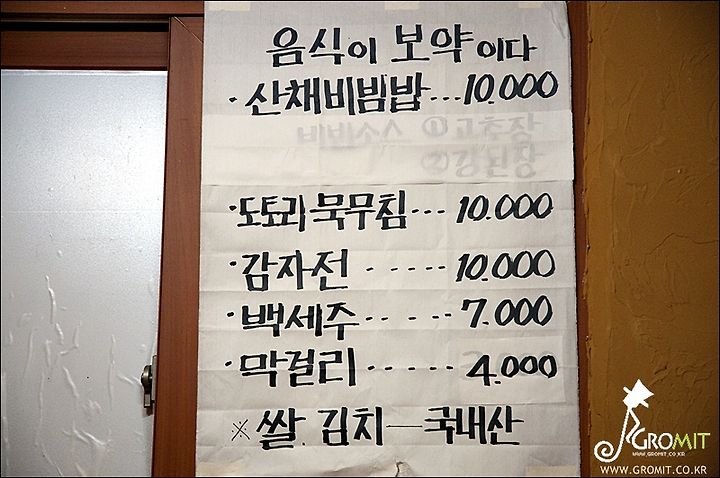 음식이 보약이다
· 산채비빔밥...10.000
비빔소스 ①고추장
②강된장
· 도토리묵무침... 10.000
· 감자전 ..... 10.000
· 백세주..... 7.000
· 막걸리..... 4.000
※ 쌀. 김치—국내산
GROMIT
WWW.GROMIT.CO.KR
WWW.GROMIT.CO.KR